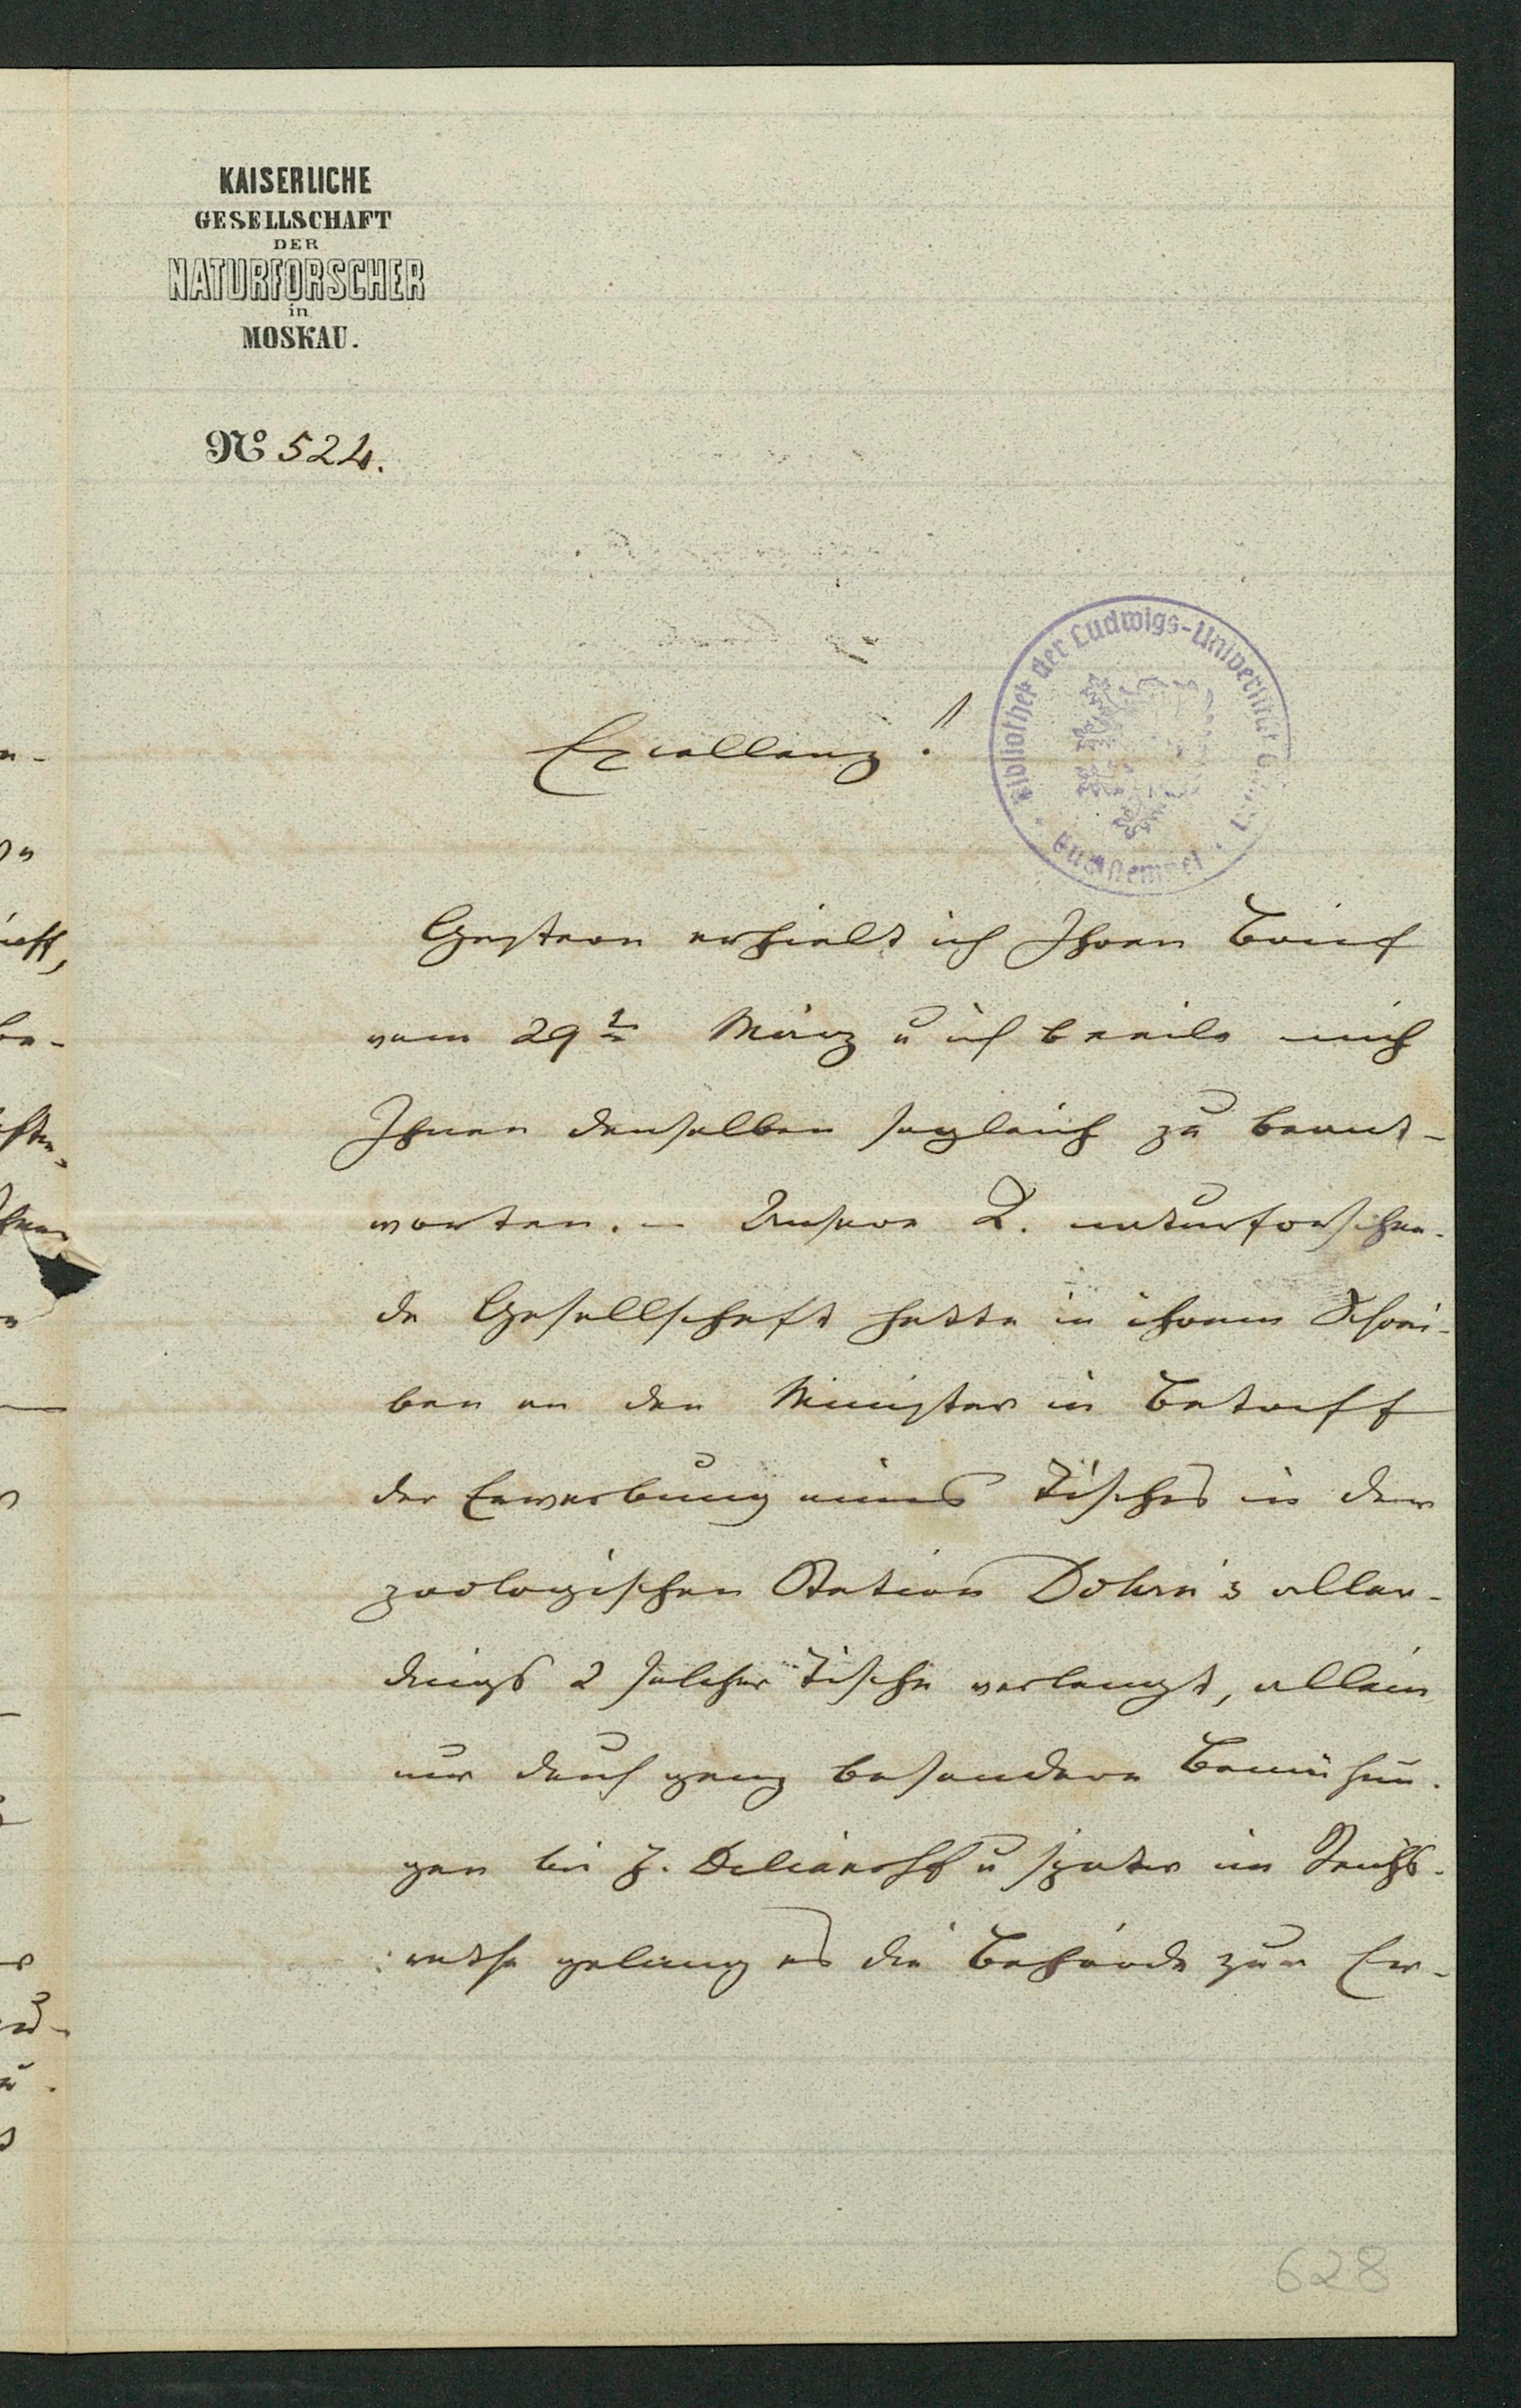 KAISERLICHE
GESELLSCHAFT
DER
NATURFORSCHER
in
MOSKAU.
No 524.
Excellenz!
Bibliothek der Ludwigs-Universität
Gestern erhielt ich Ihren Brief
vom 29t März u ich beeile mich
Ihnen denselben sogleich zu beant-
worten. – Unsere K. naturforschen-
de Gesellschaft hatte in ihrem Schrei-
ben an den Minister in Betreff
der Erwerbung eines Tisches in der
zoologischen Station Dohrn's aller-
dings 2 solcher Tische verlangt, allein
nur durch ganz besondere Bemühun-
gen bei H. Delianoff u später im Reichs-
rathe gelang es die Behörde zur Er-
628